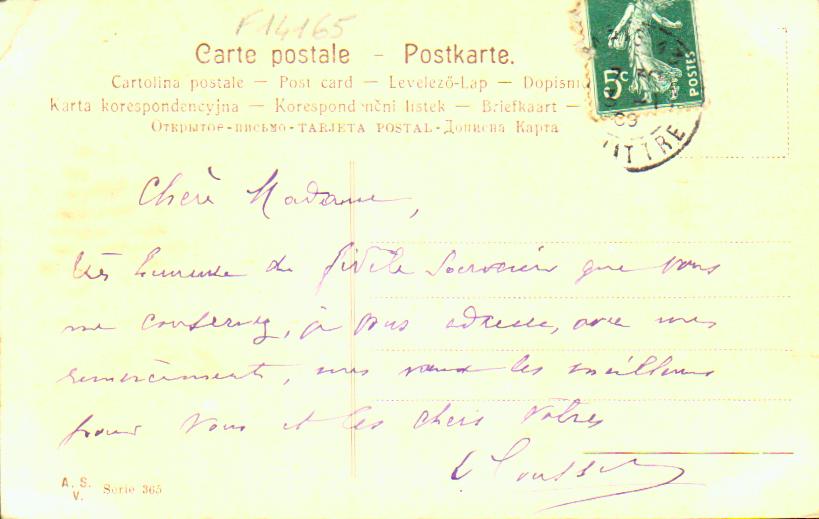 F14165
Carte postale – Postkarte.
Cartolina postale – Post card – Levelező-Lap – Dopisni
Karta korespondencyjna – Korespondenční lístek – Briefkaart –
Открытое-письмо-TARJETA POSTAL-Дописна Карта
5c
POSTES
Chère Madame,
très heureuse du fidèle souvenir que vous
me conservez, je vous adresse, avec mes
remerciements, mes vœux les meilleurs
pour vous et les chers vôtres
A. S.
V.
Serie 365